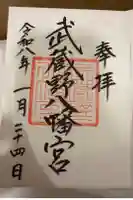 奉拝
武蔵野八幡宮
令和八年一月二十四日